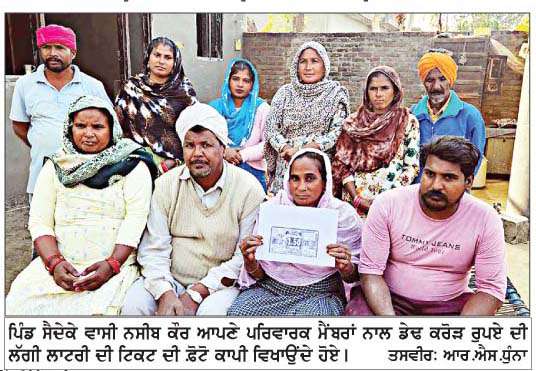 TOMMY JEANS
ਪਿੰਡ ਸੈਦੇਕੇ ਵਾਸੀ ਨਸੀਬ ਕੌਰ ਆਪਣੇ ਪਰਿਵਾਰਕ ਮੈਂਬਰਾਂ ਨਾਲ ਡੇਢ ਕਰੋੜ ਰੁਪਏ ਦੀ
ਲੱਗੀ ਲਾਟਰੀ ਦੀ ਟਿਕਟ ਦੀ ਫ਼ੋਟੋ ਕਾਪੀ ਵਿਖਾਉਂਦੇ ਹੋਏ। ਤਸਵੀਰ: ਆਰ.ਐਸ.ਧੁੰਨਾ